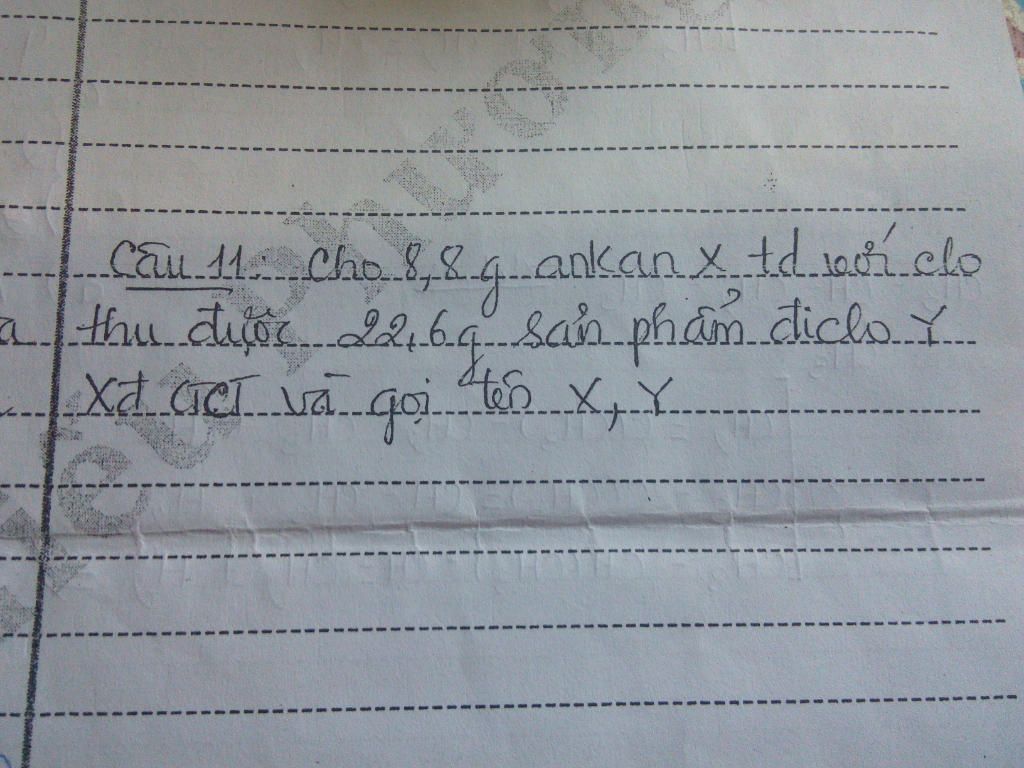 Câu 11: Cho 8,8g ankan X td với clo
a thu được 22,6g sản phẩm điclo Y
Xđ CTCT và gọi tên X, Y